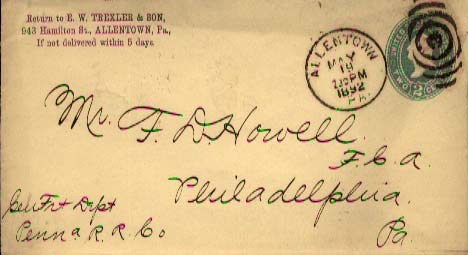 Return to E. W. TREXLER & SON,
943 Hamilton St., ALLENTOWN, Pa.,
If not delivered within 5 days.
ALLENTOWN
MAY
19
1892
PA.
UNITED
TWO CE
2
Mr. F. D. Howell.
F. C. A.
Philadelphia.
Pa.
Gel Frt Dept
Penna R. R. Co